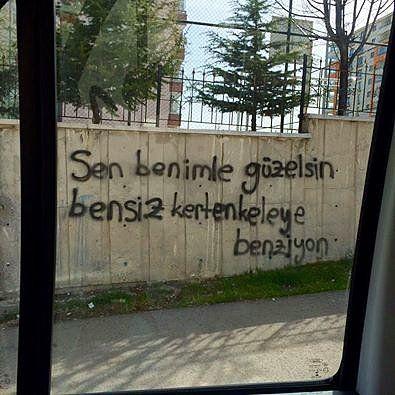 Sen benimle güzelsin
bensiz kertenkeleye
benziyon